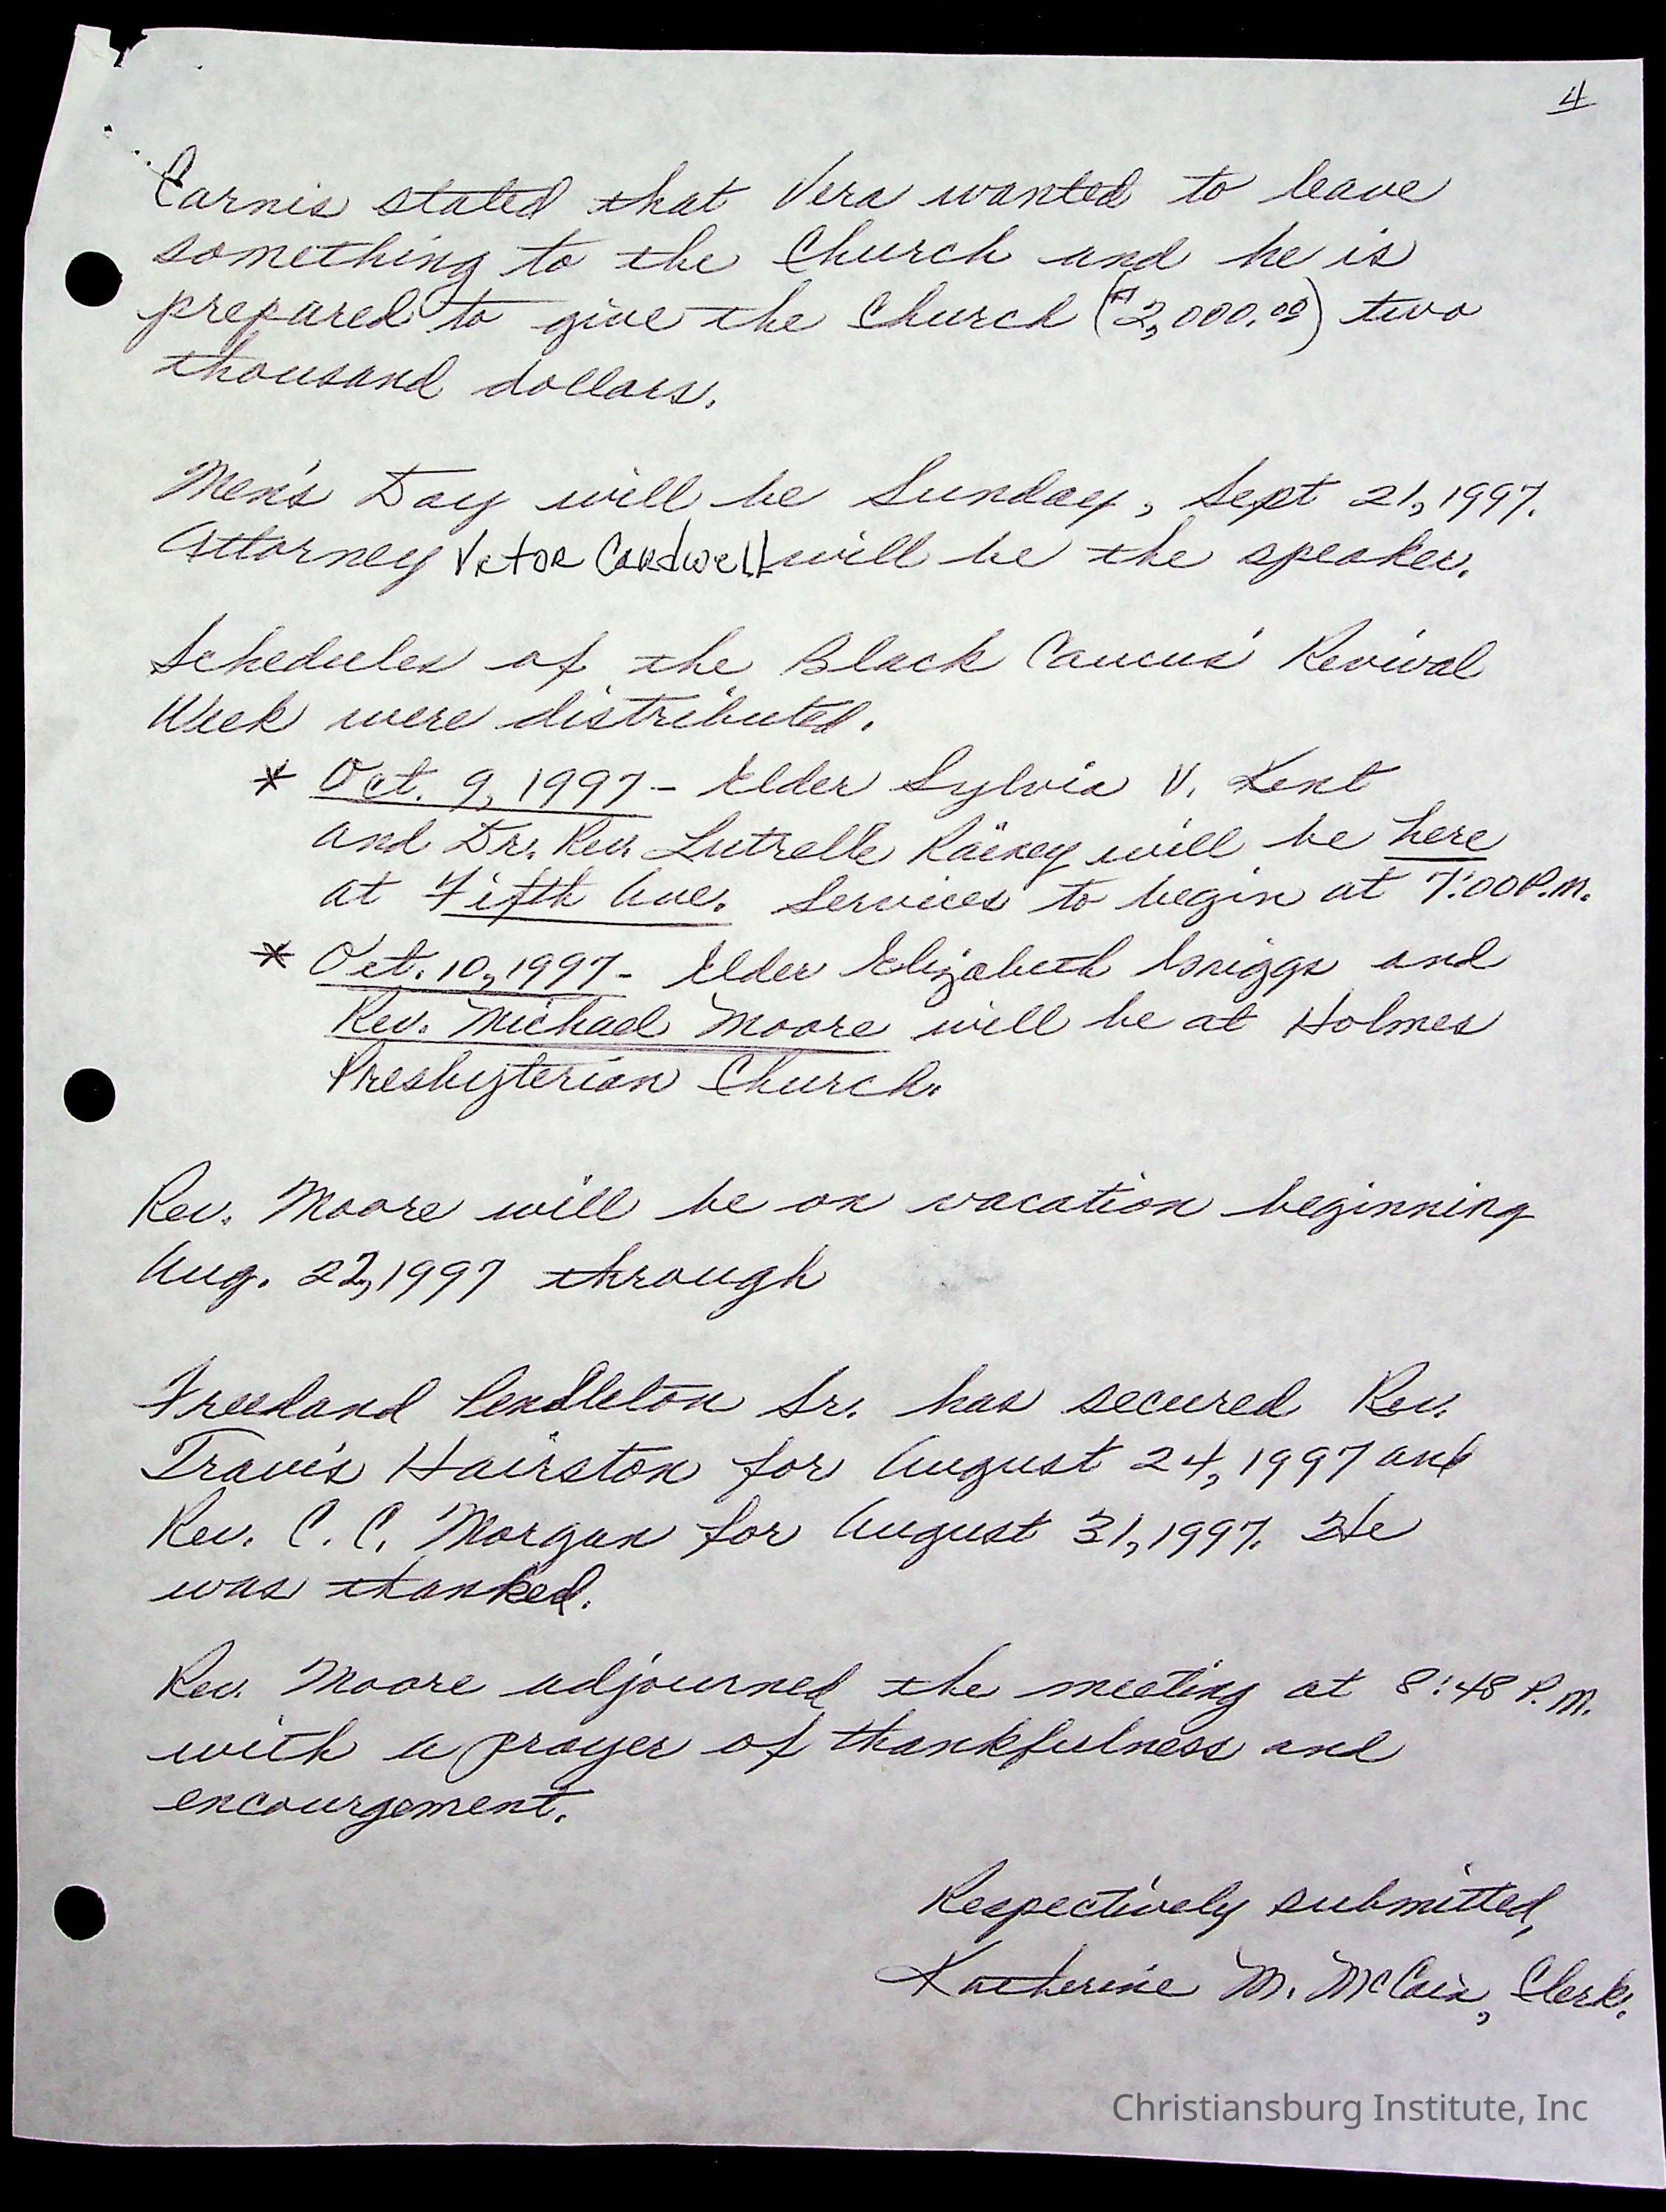 4
Carnis stated that Vera wanted to leave
something to the Church and he is
prepared to give the Church ($2,000.00) two
thousand dollars.
Men's Day will be Sunday, Sept 21, 1997.
Attorney Victor Cardwell will be the speaker.
Schedules of the Black Caucus' Revival
Week were distributed.
* Oct. 9, 1997 - Elder Sylvia V. Kent
and Dr. Rev. Lutrelle Rainey will be here
at Fifth Ave. Services to begin at 7:00 P.M.
* Oct. 10, 1997 - Elder Elizabeth Griggs and
Rev. Michael Moore will be at Holmes
Presbyterian Church.
Rev. Moore will be on vacation beginning
Aug. 22, 1997 through
Freeland Pendleton Sr. has secured Rev.
Travis Hairston for August 24, 1997 and
Rev. C. C. Morgan for August 31, 1997. He
was thanked.
Rev. Moore adjourned the meeting at 8:48 P.M.
with a prayer of thankfulness and
encourgement.
Respectively submitted,
Katherine M. McCain, Clerk.
Christiansburg Institute, Inc